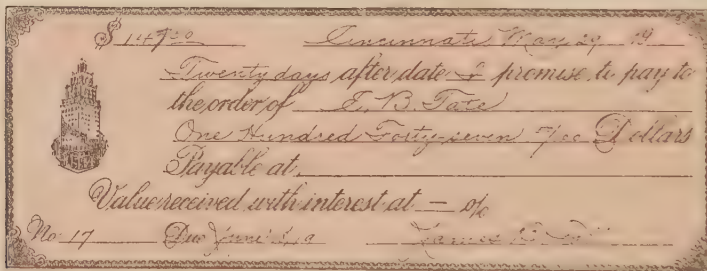 $ 147 00/100 Cincinnati, May 29, 19
Twenty days after date I promise to pay to
the order of J. B. Tate
One Hundred Forty-seven no/100 Dollars
Payable at
Value received with interest at — %
No. 17 Due June James